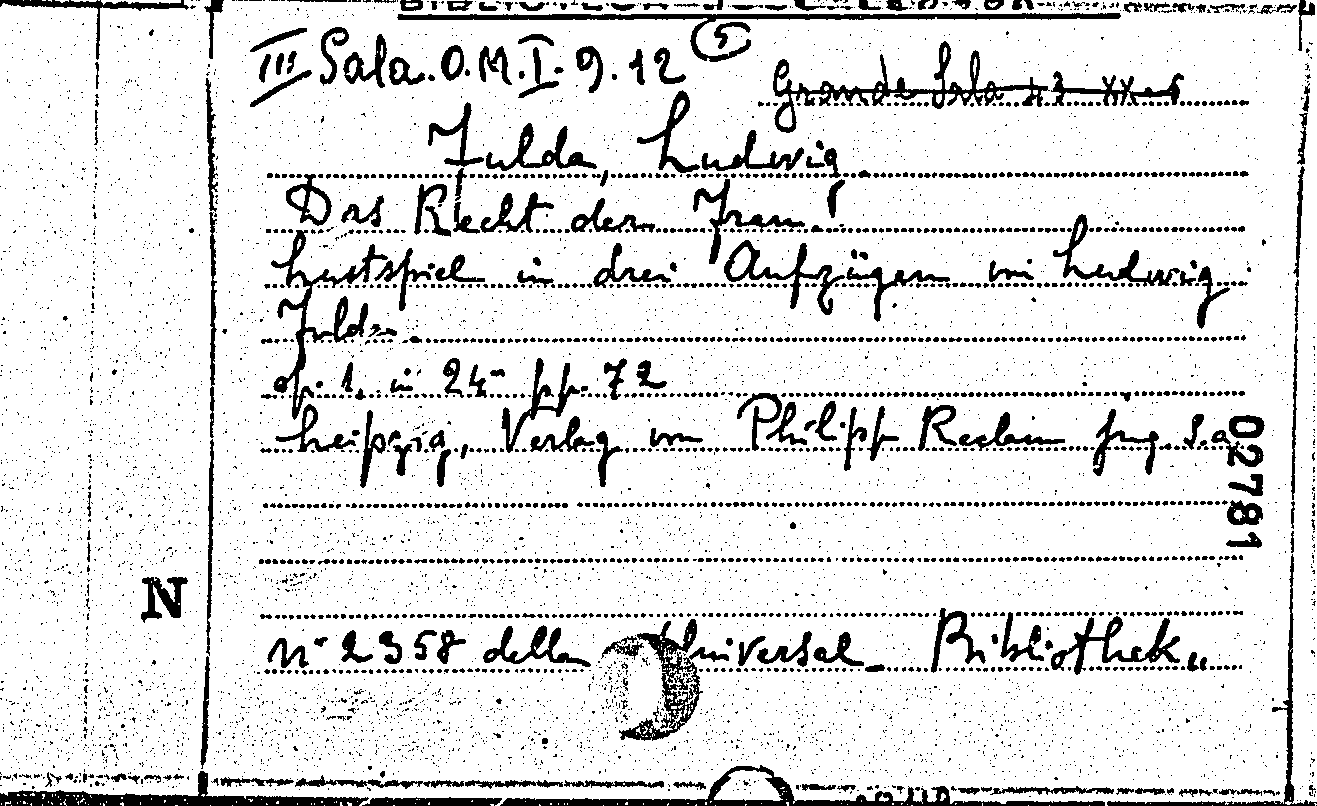 III Sala. O.M.I. 9. 12 (5)
Grande Sala 43 XX-5
Fulda, Ludwig.
Das Recht der Frau!
Lustspiel in drei Aufzügen von Ludwig
Fulda.
op. 1. in 24° pp. 72
Leipzig, Verlag von Philipp Reclam jug. s.a.
02781
N
n° 2358 della Universal Bibliothek"